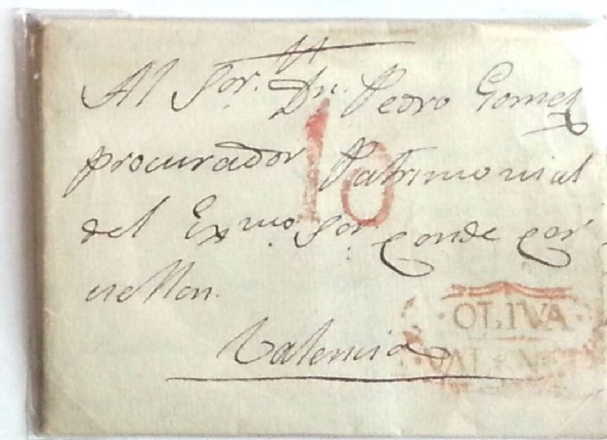 Al Sor. Dn. Pedro Gomez
procurador Patrimonial
10
del Exmo. Sor. Conde Cer
vellon.
Valencia
OLIVA
VALENCIA